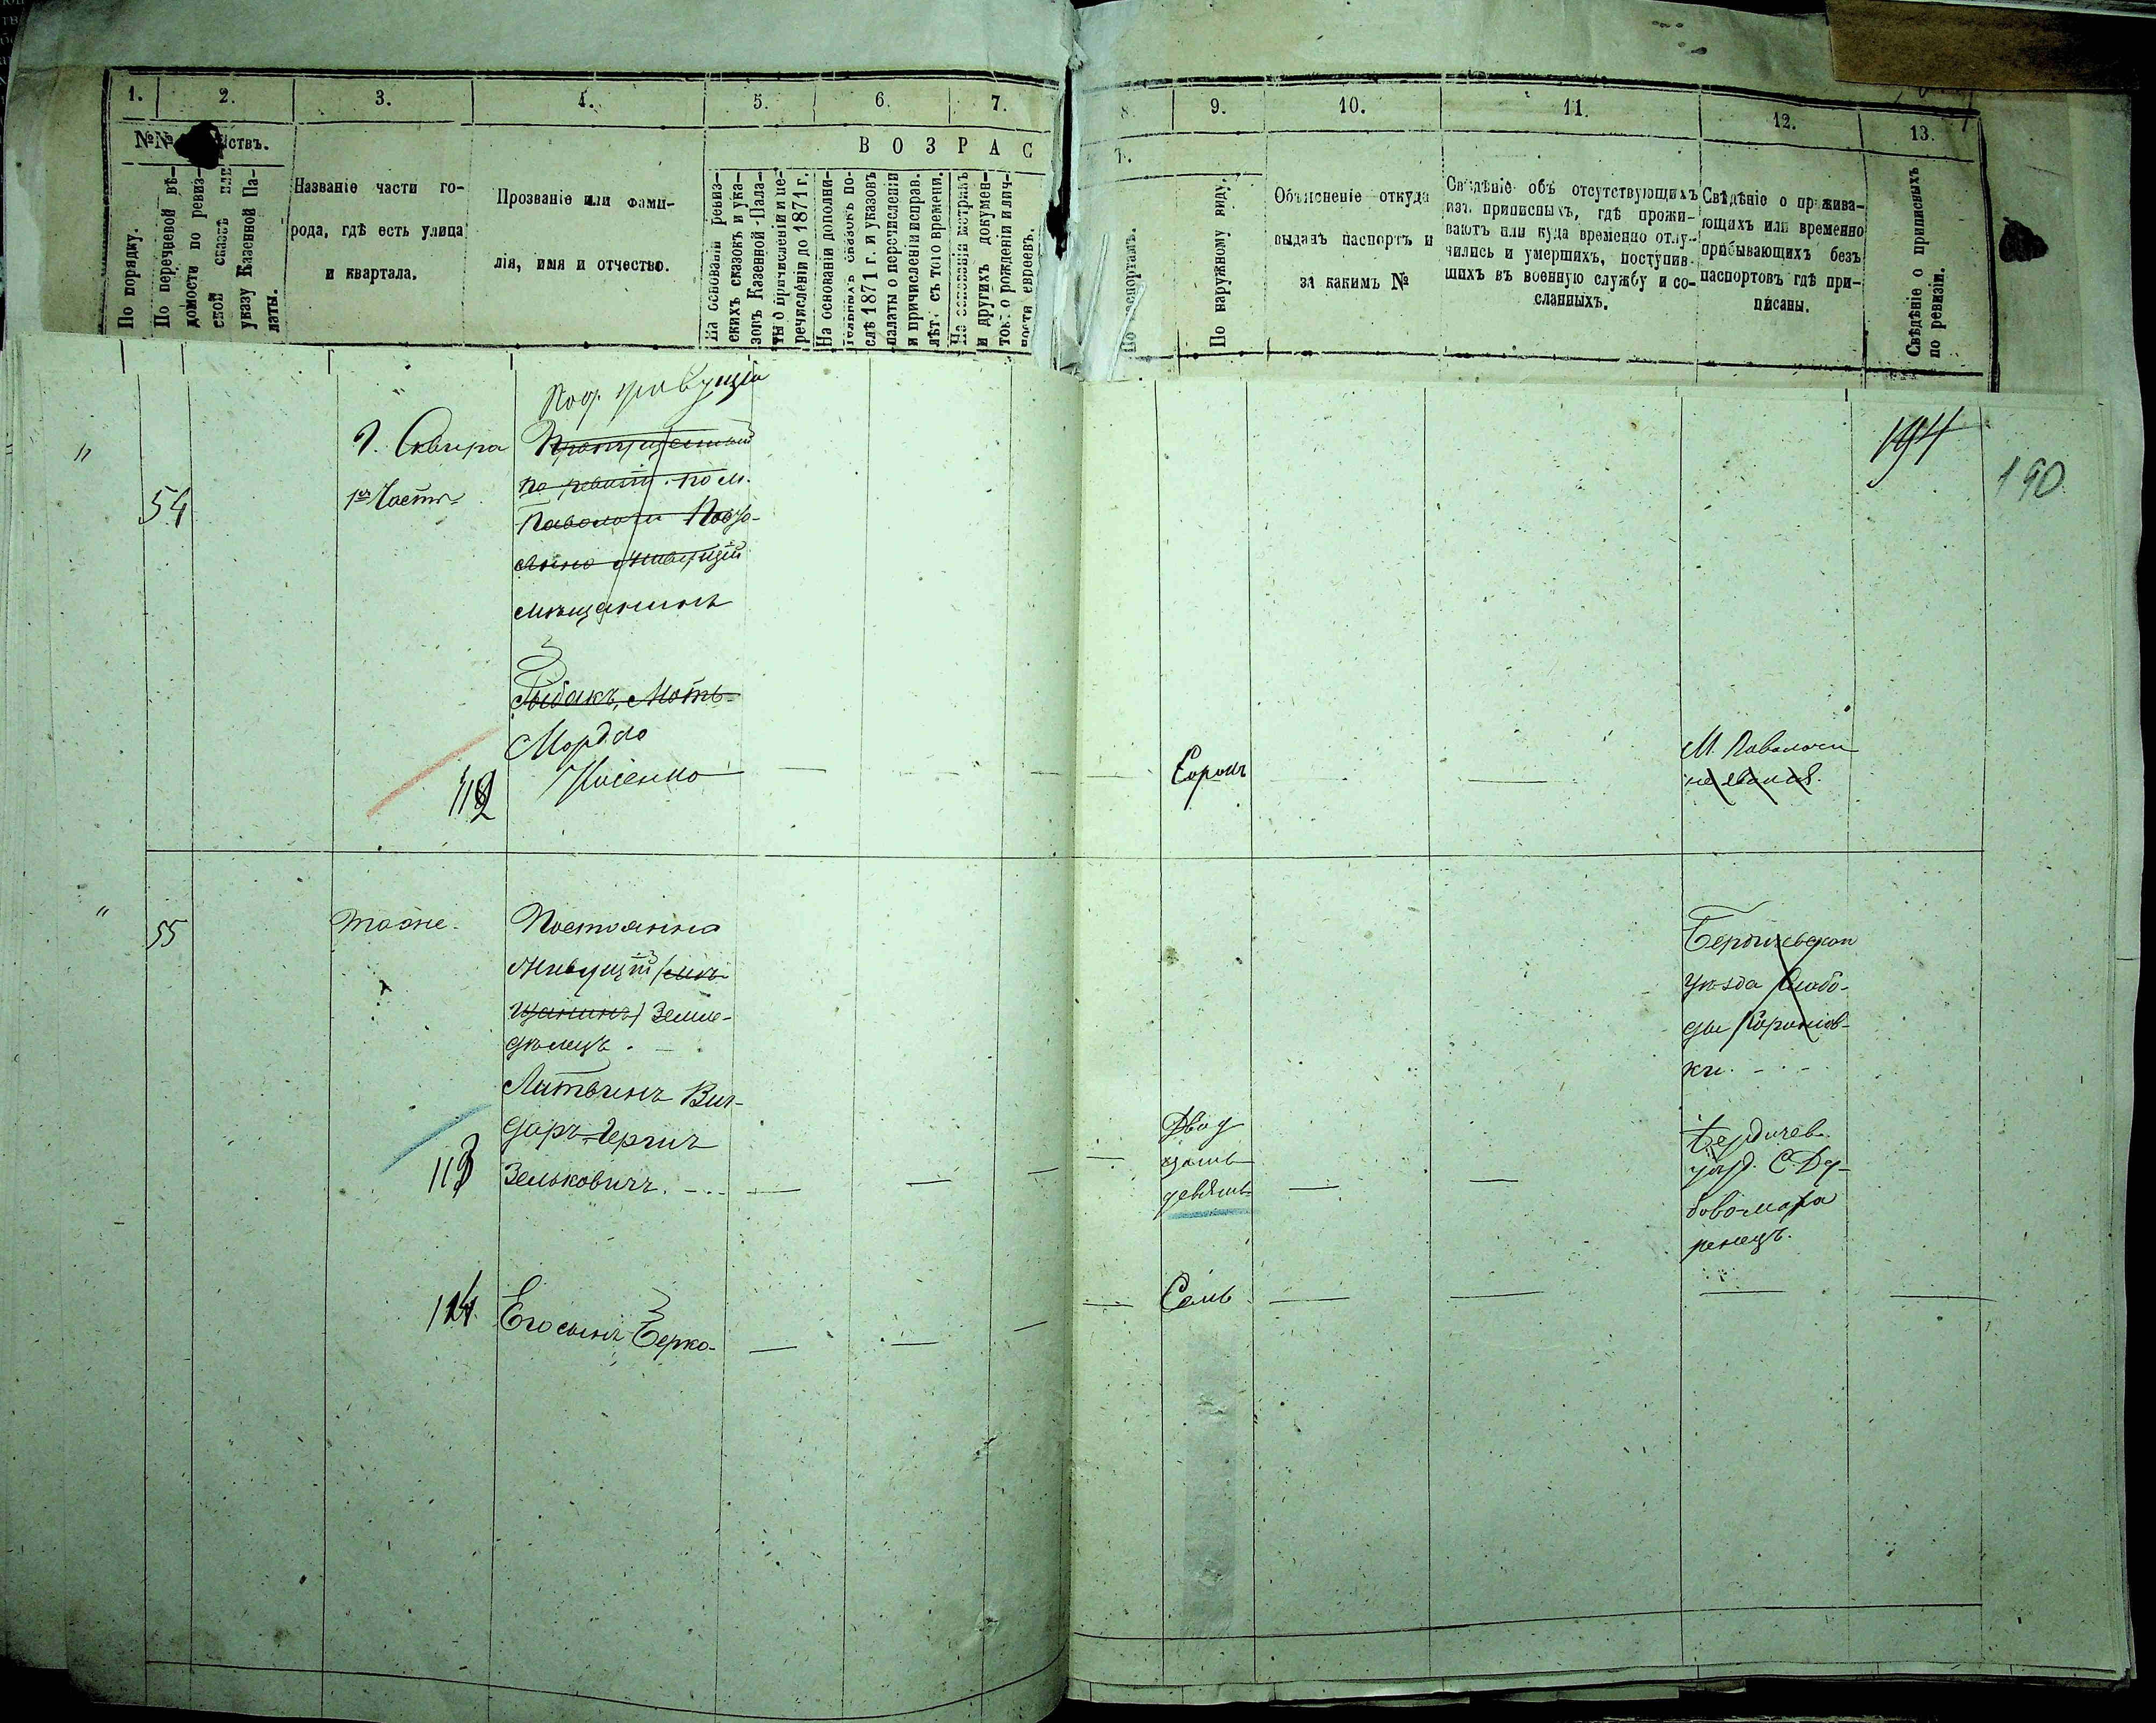 1.
2.
3.
4.
5.
6.
7.
8.
9.
10.
11.
12.
13.
№№
ствъ.
По порядку.
По перечневой вѣ-
домости по ревиз-
ской сказкѣ или
указу Казенной Па-
латы.
Названіе части го-
рода, гдѣ есть улица
и квартала.
Прозваніе или фами-
лія, имя и отчество.
ВОЗРАС
Т.
На основаніи ревиз-
скихъ сказокъ и ука-
зовъ Казенной Пала-
ты о причисленіи и пе-
речисленіи до 1871 г.
На основаніи дополни-
тельныхъ сказокъ по-
слѣ 1871 г. и указовъ
палаты о перечисленіи
и причисленіи исправ.
лѣтъ съ того времени.
На основаніи метрикъ
и другихъ докумен-
товъ о рожденіи и лич-
ности евреевъ.
По паспортамъ.
По наружному виду.
Объясненіе откуда
выданъ паспортъ и
за какимъ №
Свѣдѣніе объ отсутствующихъ
изъ приписныхъ, гдѣ прожи-
ваютъ или куда временно отлу-
чились и умершихъ, поступив-
шихъ въ военную службу и со-
сланныхъ.
Свѣдѣніе о прожива-
ющихъ или временно
прибывающихъ безъ
паспортовъ гдѣ при-
писаны.
Свѣдѣніе о приписныхъ
по ревизіи.
194
190
"
54
Г. Сквира
1я Часть
Пропущенный
по ревизіи по м.
Паволочи Посто-
янно живущій
мѣщанинъ
Рыбакъ, Моть-
Мордко
112
Іосенко
Сорокъ
М. Паволочи
"
55
тоже.
Постоянно
живущій (мѣ-
щанинъ) земле-
дѣлецъ.
Литвинъ Виг-
доръ-Гершъ
113
Зельковичъ.
Двад
цать
девять
Бердичевскаго
уѣзда Слобо-
ды
ки.
Бердичев.
уѣзд. С. Ду-
бово-мака
ренецъ.
114
Его сынъ Берко
Семь